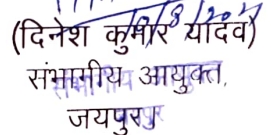 (दिनेश कुमार यादव)
संभागीय आयुक्त,
जयपुर